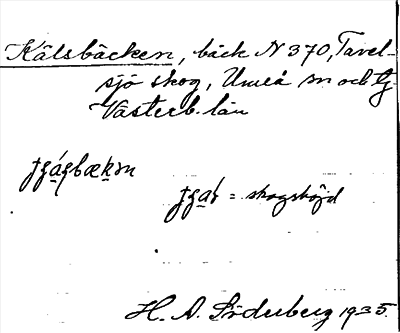 Kälsbäcken, bäck N 370, Tavel-
sjö skog, Umeå sn och tg.
Västerb. län
= skogshöjd
H. A. Söderberg 1935.